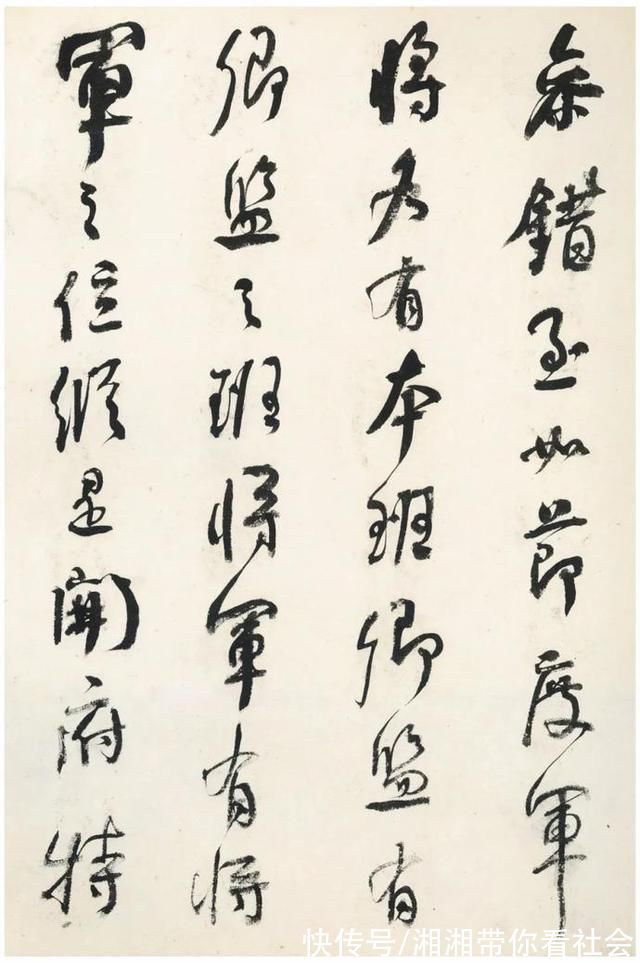 參錯至如節度軍
將各有本班卿監有
卿監之班將軍有將
軍之位縱是開府特
快传号/湘湘带你看社会